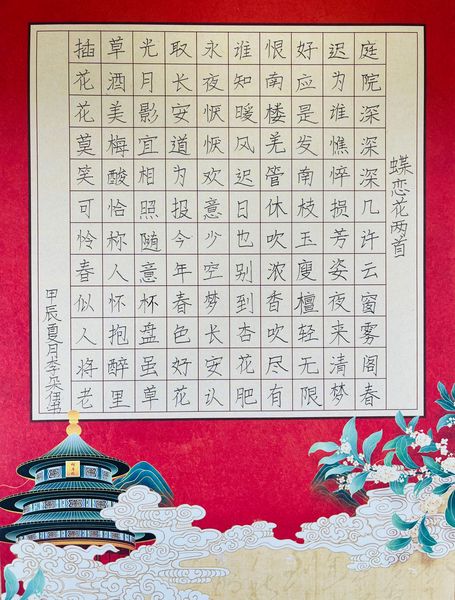 蝶恋花两首
庭院深深深几许云窗雾阁春
迟为谁憔悴损芳姿夜来清梦
好应是发南枝玉瘦檀轻无限
恨南楼羌管休吹浓香吹尽有
谁知暖风迟日也别到杏花肥
永夜恹恹欢意少空梦长安认
取长安道为报今年春色好花
光月影宜相照随意杯盘虽草
草酒美梅酸恰称人怀抱醉里
插花花莫笑可怜春似人将老
甲辰夏月李朵书